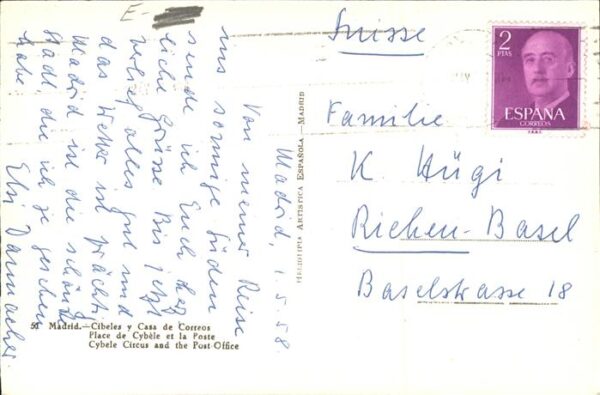 E-
Madrid, 1.5.58.
Von meiner Reise
ins sonnige Süden
sende ich Euch herz-
liche Grüsse. Bis jetzt
verlief alles gut und
das Wetter ist prächtig.
Madrid ist die schönste
Stadt, die ich je gesehen
habe.
Elsi
Suisse
Familie
K. Hügi
Riehen-Basel
Baselstrasse 18
2
PTAS
ESPAÑA
CORREOS
HELIOTIPIA ARTÍSTICA ESPAÑOLA - MADRID
51 Madrid.—Cibeles y Casa de Correos
Place de Cybèle et la Poste
Cybele Circus and the Post Office